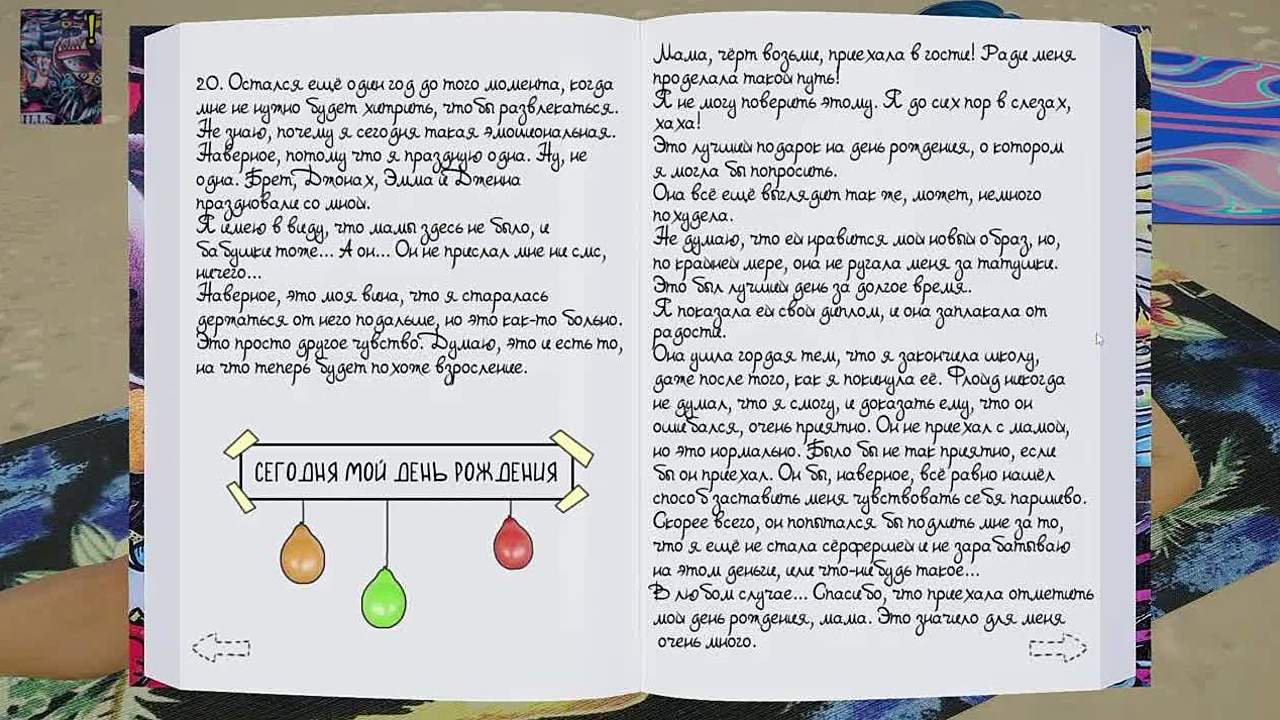 20. Остался ещё один год до того момента, когда
мне не нужно будет хитрить, чтобы развлекаться.
Не знаю, почему я сегодня такая эмоциональная.
Наверное, потому что я праздную одна. Ну, не
одна. Брет, Джонах, Эмма и Дженна
праздновали со мной.
Я имею в виду, что мамы здесь не было, и
бабушки тоже... А он... Он не прислал мне ни смс,
ничего...
Наверное, это моя вина, что я старалась
держаться от него подальше, но это как-то больно.
Это просто другое чувство. Думаю, это и есть то,
на что теперь будет похоже взросление.
СЕГОДНЯ МОЙ ДЕНЬ РОЖДЕНИЯ
Мама, чёрт возьми, приехала в гости! Ради меня
проделала такой путь!
Я не могу поверить этому. Я до сих пор в слезах,
хаха!
Это лучший подарок на день рождения, о котором
я могла бы попросить.
Она всё ещё выглядит так же, может, немного
похудела.
Не думаю, что ей нравится мой новый образ, но,
по крайней мере, она не ругала меня за татушки.
Это был лучший день за долгое время..
Я показала ей свой диплом, и она заплакала от
радости.
Она ушла гордая тем, что я закончила школу,
даже после того, как я покинула её. Флойд никогда
не думал, что я смогу, и доказать ему, что он
ошибался, очень приятно. Он не приехал с мамой,
но это нормально. Было бы не так приятно, если
бы он приехал. Он бы, наверное, всё равно нашёл
способ заставить меня чувствовать себя паршиво.
Скорее всего, он попытался бы подлить мне за то,
что я ещё не стала сёрфершей и не зарабатываю
на этом деньги, или что-нибудь такое...
В любом случае... Спасибо, что приехала отметить
мой день рождения, мама. Это значило для меня
очень много.
ILLS
!